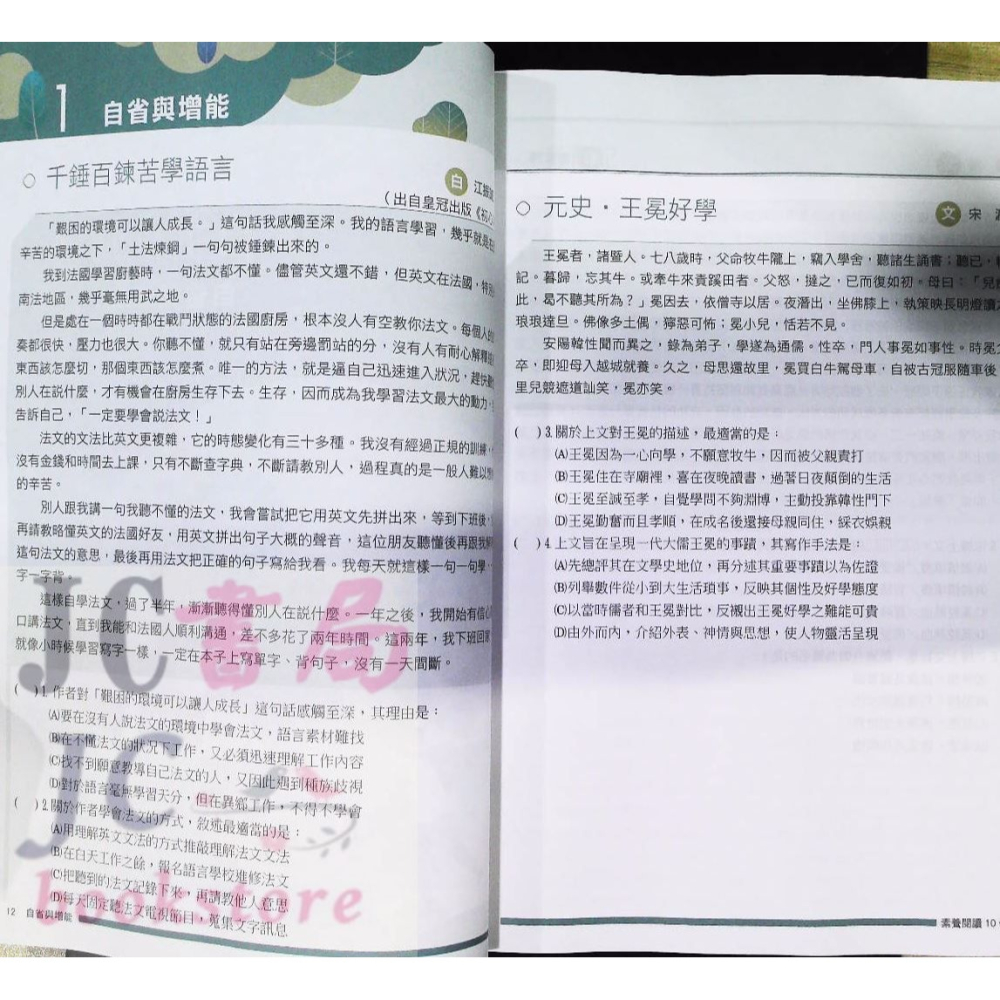 1 自省與增能
千錘百鍊苦學語言
白 江振
（出自皇冠出版《初心
「艱困的環境可以讓人成長。」這句話我感觸至深。我的語言學習，幾乎就是在
辛苦的環境之下，「土法煉鋼」一句句被錘鍊出來的。
我到法國學習廚藝時，一句法文都不懂。儘管英文還不錯，但英文在法國，特別
南法地區，幾乎毫無用武之地。
但是處在一個時時都在戰鬥狀態的法國廚房，根本沒人有空教你法文。每個人的
奏都很快，壓力也很大。你聽不懂，就只有站在旁邊罰站的分，沒有人有耐心解釋
東西該怎麼切，那個東西該怎麼煮。唯一的方法，就是逼自己迅速進入狀況，趕快
別人在說什麼，才有機會在廚房生存下去。生存，因而成為我學習法文最大的動力，
告訴自己，「一定要學會說法文！」
法文的文法比英文更複雜，它的時態變化有三十多種。我沒有經過正規的訓練，
沒有金錢和時間去上課，只有不斷查字典，不斷請教別人，過程真的是一般人難以
的辛苦。
別人跟我講一句我聽不懂的法文，我會嘗試把它用英文先拼出來，等到下班後，
再請教略懂英文的法國好友，用英文拼出句子大概的聲音，這位朋友聽懂後再跟我
這句法文的意思，最後再用法文把正確的句子寫給我看。我每天就這樣一句一句學，
字一字背。
這樣自學法文，過了半年，漸漸聽得懂別人在說什麼。一年之後，我開始有信心
口講法文，直到我能和法國人順利溝通，差不多花了兩年時間。這兩年，我下班回
就像小時候學習寫字一樣，一定在本子上寫單字、背句子，沒有一天間斷。
(　)1.作者對「艱困的環境可以讓人成長」這句話感觸至深，其理由是：
(A)要在沒有人說法文的環境中學會法文，語言素材難找
(B)在不懂法文的狀況下工作，又必須迅速理解工作內容
(C)找不到願意教導自己法文的人，又因此遇到種族歧視
(D)對於語言毫無學習天分，但在異鄉工作，不得不學會
(　)2.關於作者學會法文的方式，敘述最適當的是：
(A)用理解英文文法的方式推敲理解法文文法
(B)在白天工作之餘，報名語言學校進修法文
(C)把聽到的法文記錄下來，再請教他人意思
(D)每天固定聽法文電視節目，蒐集文字訊息
12 自省與增能
JC書局
JC
bookstore
元史・王冕好學
文 宋
王冕者，諸暨人。七八歲時，父命牧牛隴上，竊入學舍，聽諸生誦書；聽已，
記。暮歸，忘其牛。或牽牛來責蹊田者。父怒，撻之，已而復如初。母曰：「兒
此，曷不聽其所為？」冕因去，依僧寺以居。夜潛出，坐佛膝上，執策映長明燈讀
琅琅達旦。佛像多土偶，獰惡可怖；冕小兒，恬若不見。
安陽韓性聞而異之，錄為弟子，學遂為通儒。性卒，門人事冕如事性。時冕
卒，即迎母入越城就養。久之，母思還故里，冕買白牛駕母車，自被古冠服隨車後
里兒競遮道訕笑，冕亦笑。
(　)3.關於上文對王冕的描述，最適當的是：
(A)王冕因為一心向學，不願意牧牛，因而被父親責打
(B)王冕住在寺廟裡，喜在夜晚讀書，過著日夜顛倒的生活
(C)王冕至誠至孝，自覺學問不夠淵博，主動投靠韓性門下
(D)王冕勤奮而且孝順，在成名後還接母親同住，綵衣娛親
(　)4.上文旨在呈現一代大儒王冕的事蹟，其寫作手法是：
(A)先總評其在文學史地位，再分述其重要事蹟以為佐證
(B)列舉數件從小到大生活瑣事，反映其個性及好學態度
(C)以當時儒者和王冕對比，反襯出王冕好學之難能可貴
(D)由外而內，介紹外表、神情與思想，使人物靈活呈現
素養閱讀 10